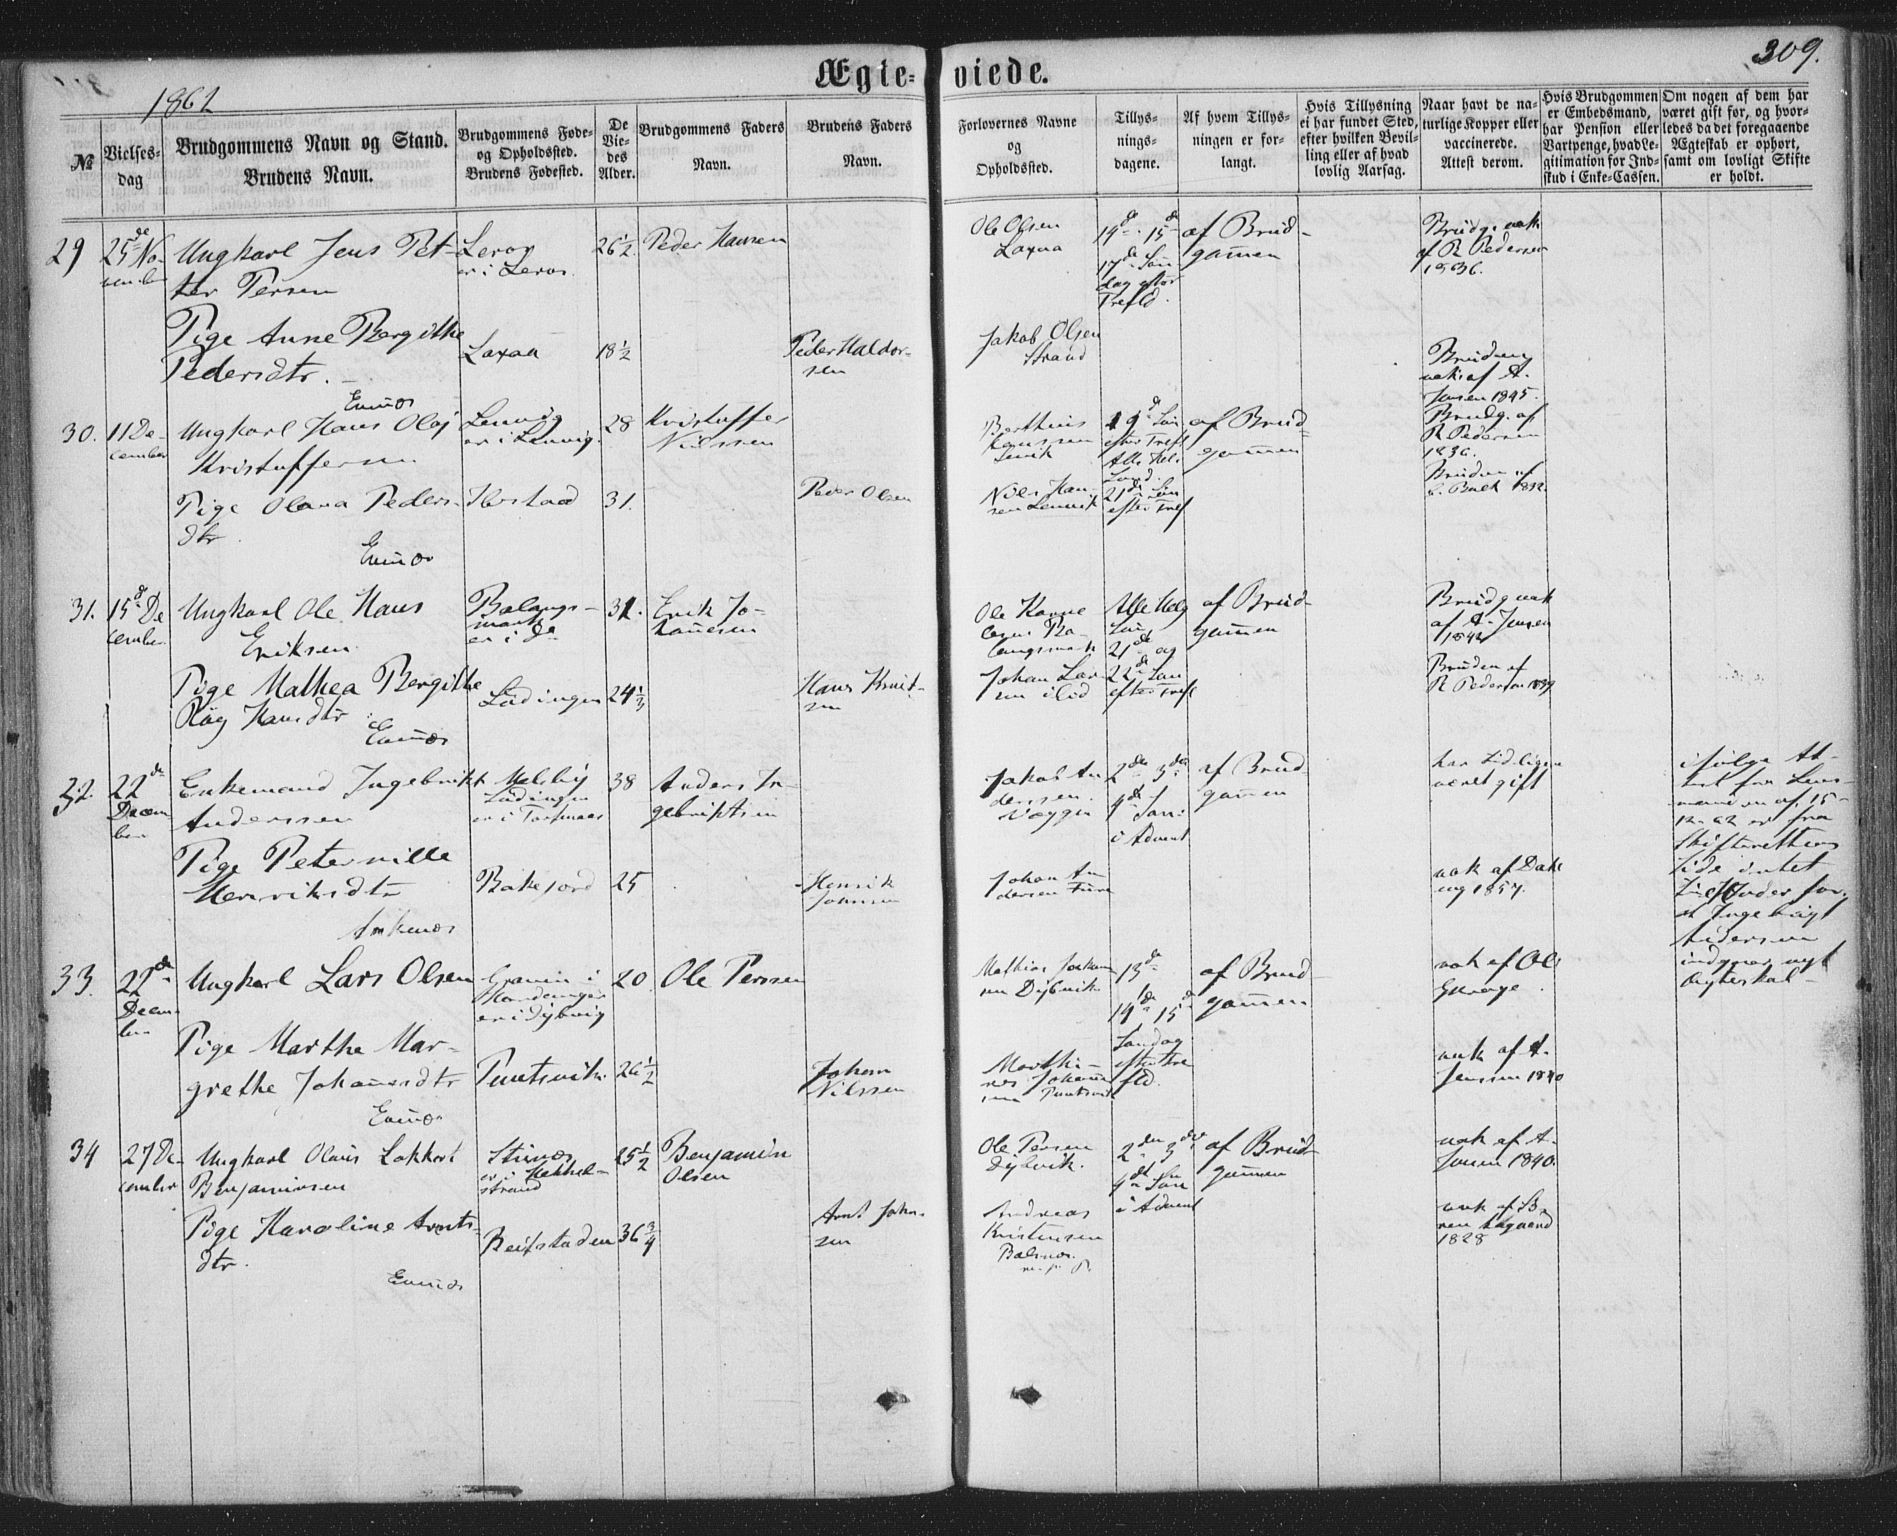 Ægte- viede.
309.
1862
№
Vielses-
dag
Brudgommens Navn og Stand.
Brudens Navn.
Brudgommens Føde-
og Opholdssted.
Brudens Fødested.
De
Vie-
des
Alder.
Brudgommens Faders
Navn.
Brudens Faders
Navn.
Forlovernes Navne
og
Opholdssted.
Tillys-
nings-
dagene.
Af hvem Tillys-
ningen er for-
langt.
Hvis Tillysning
ei har fundet Sted,
efter hvilken Bevil-
ling eller af hvad
lovlig Aarsag.
Naar havt de na-
turlige Kopper eller
vaccinerede.
Attest derom.
Hvis Brudgommen
er Embedsmand,
har Pension eller
Vartpenge, hvad Le-
gitimation for Ind-
skud i Enke-Cassen.
Om nogen af dem har
været gift for, og hvor-
ledes da det foregaaende
Ægteskab er ophørt,
samt om lovligt Skifte
er holdt.
29
25de No-
vember
Ungkarl Jens Pet-
ter Persen
Lerog
er i Leros
26½
Peder Hansen
Ole Olsen
Laxaa
14de 15de
17de Søn
dag efter
Trefld.
af Brud-
gommen
Brudg. vak
af R Pedersen
1836.
Pige Anne Bergitthe
Pedersdtr.
Evenæs
Laxaa
18½
Peder Haldor-
sen
Jakob Olsen
Strand
Bruden
vak. af A.
Jensen 1845.
30.
11 De-
cember
Ungkarl Hans Olaj
Kristoffersen
Lenvig
er i Lenvig
28
Kristoffer
Nilssen
Berthius
Hanssen
Lenvik
19de Søn
efter Tref
Alle Hel.
21de Søn
efter Tref
af Brud-
gommen
Brudg. af
R Pedersen
1836.
Pige Olava Peders-
dtr.
Evenæs
31.
Peder Olsen
Nils Han
sen Lenvik
Bruden af
31.
15de De
cember
Ungkarl Ole Hans
Eriksen
Balangs-
mark
er i do
31.
Erik Jo-
hannesen
Alle Helg
Søn
21de og
22de Søn
efter Tref
af Brud-
gommen
Brudg vak
af A. Jensen
1842
Pige Mathea Bergithe
Røg Hansdtr
Evenæs
Lødingen
24⅓
Hans Knut-
sen
Johan Lar-
sen
Bruden af
R Pedersen 1839
32.
22de
Decem
ber
Enkemand Ingebrikt
Anderssen
Melsby
Lødingen
38
Anders In-
gebriktsen
Jakob An
derssen
2den 3die
4de Søn:
i Advent
af Brud-
gommen
har tidligere
været gift
ifølge At-
test fra Lens-
manden af 15-
12-62 er fra
Skifterettens
Side intet
til Hinder for,
at Ingebrigt
Andersen
indgaar nyt
Ægteskab
Pige Peternille
Henriksdtr
Ankenæs
Bakejord
25
Henrik
Johnsen
Johan An
dersen
vak af Dahl
1857.
33.
22de
Decem
ber
Ungkarl Lars Olsen
Gramin i
er i Dybvig
20
Ole Perssen
Mathias Joakim
sen Dybvik
13de
14de 15de
Søndag
efter Tre
fld.
af Brud-
gommen
vak af Ole
Pige Marthe Mar-
grethe Johannesdtr
Evenæs
Puntsvik.
26½
Johan
Nilssen
vak af A.
Jenssen 1840
34
27 De-
cember
Ungkarl Olaus Lokkert
Benjaminsen
Stunes
er i Kjekkel-
strand
25½
Benjamin
Olsen
Ole Persen
Dybvik.
2den 3die
4de Søn
i Advent
af Brud-
gommen
vak af A.
Jensen 1840.
Pige Karoline Arnts-
dtr.
Evenæs
Reifstaden
36¾
Arnt John-
sen
Andreas
Kristensen
Balsnes
1828